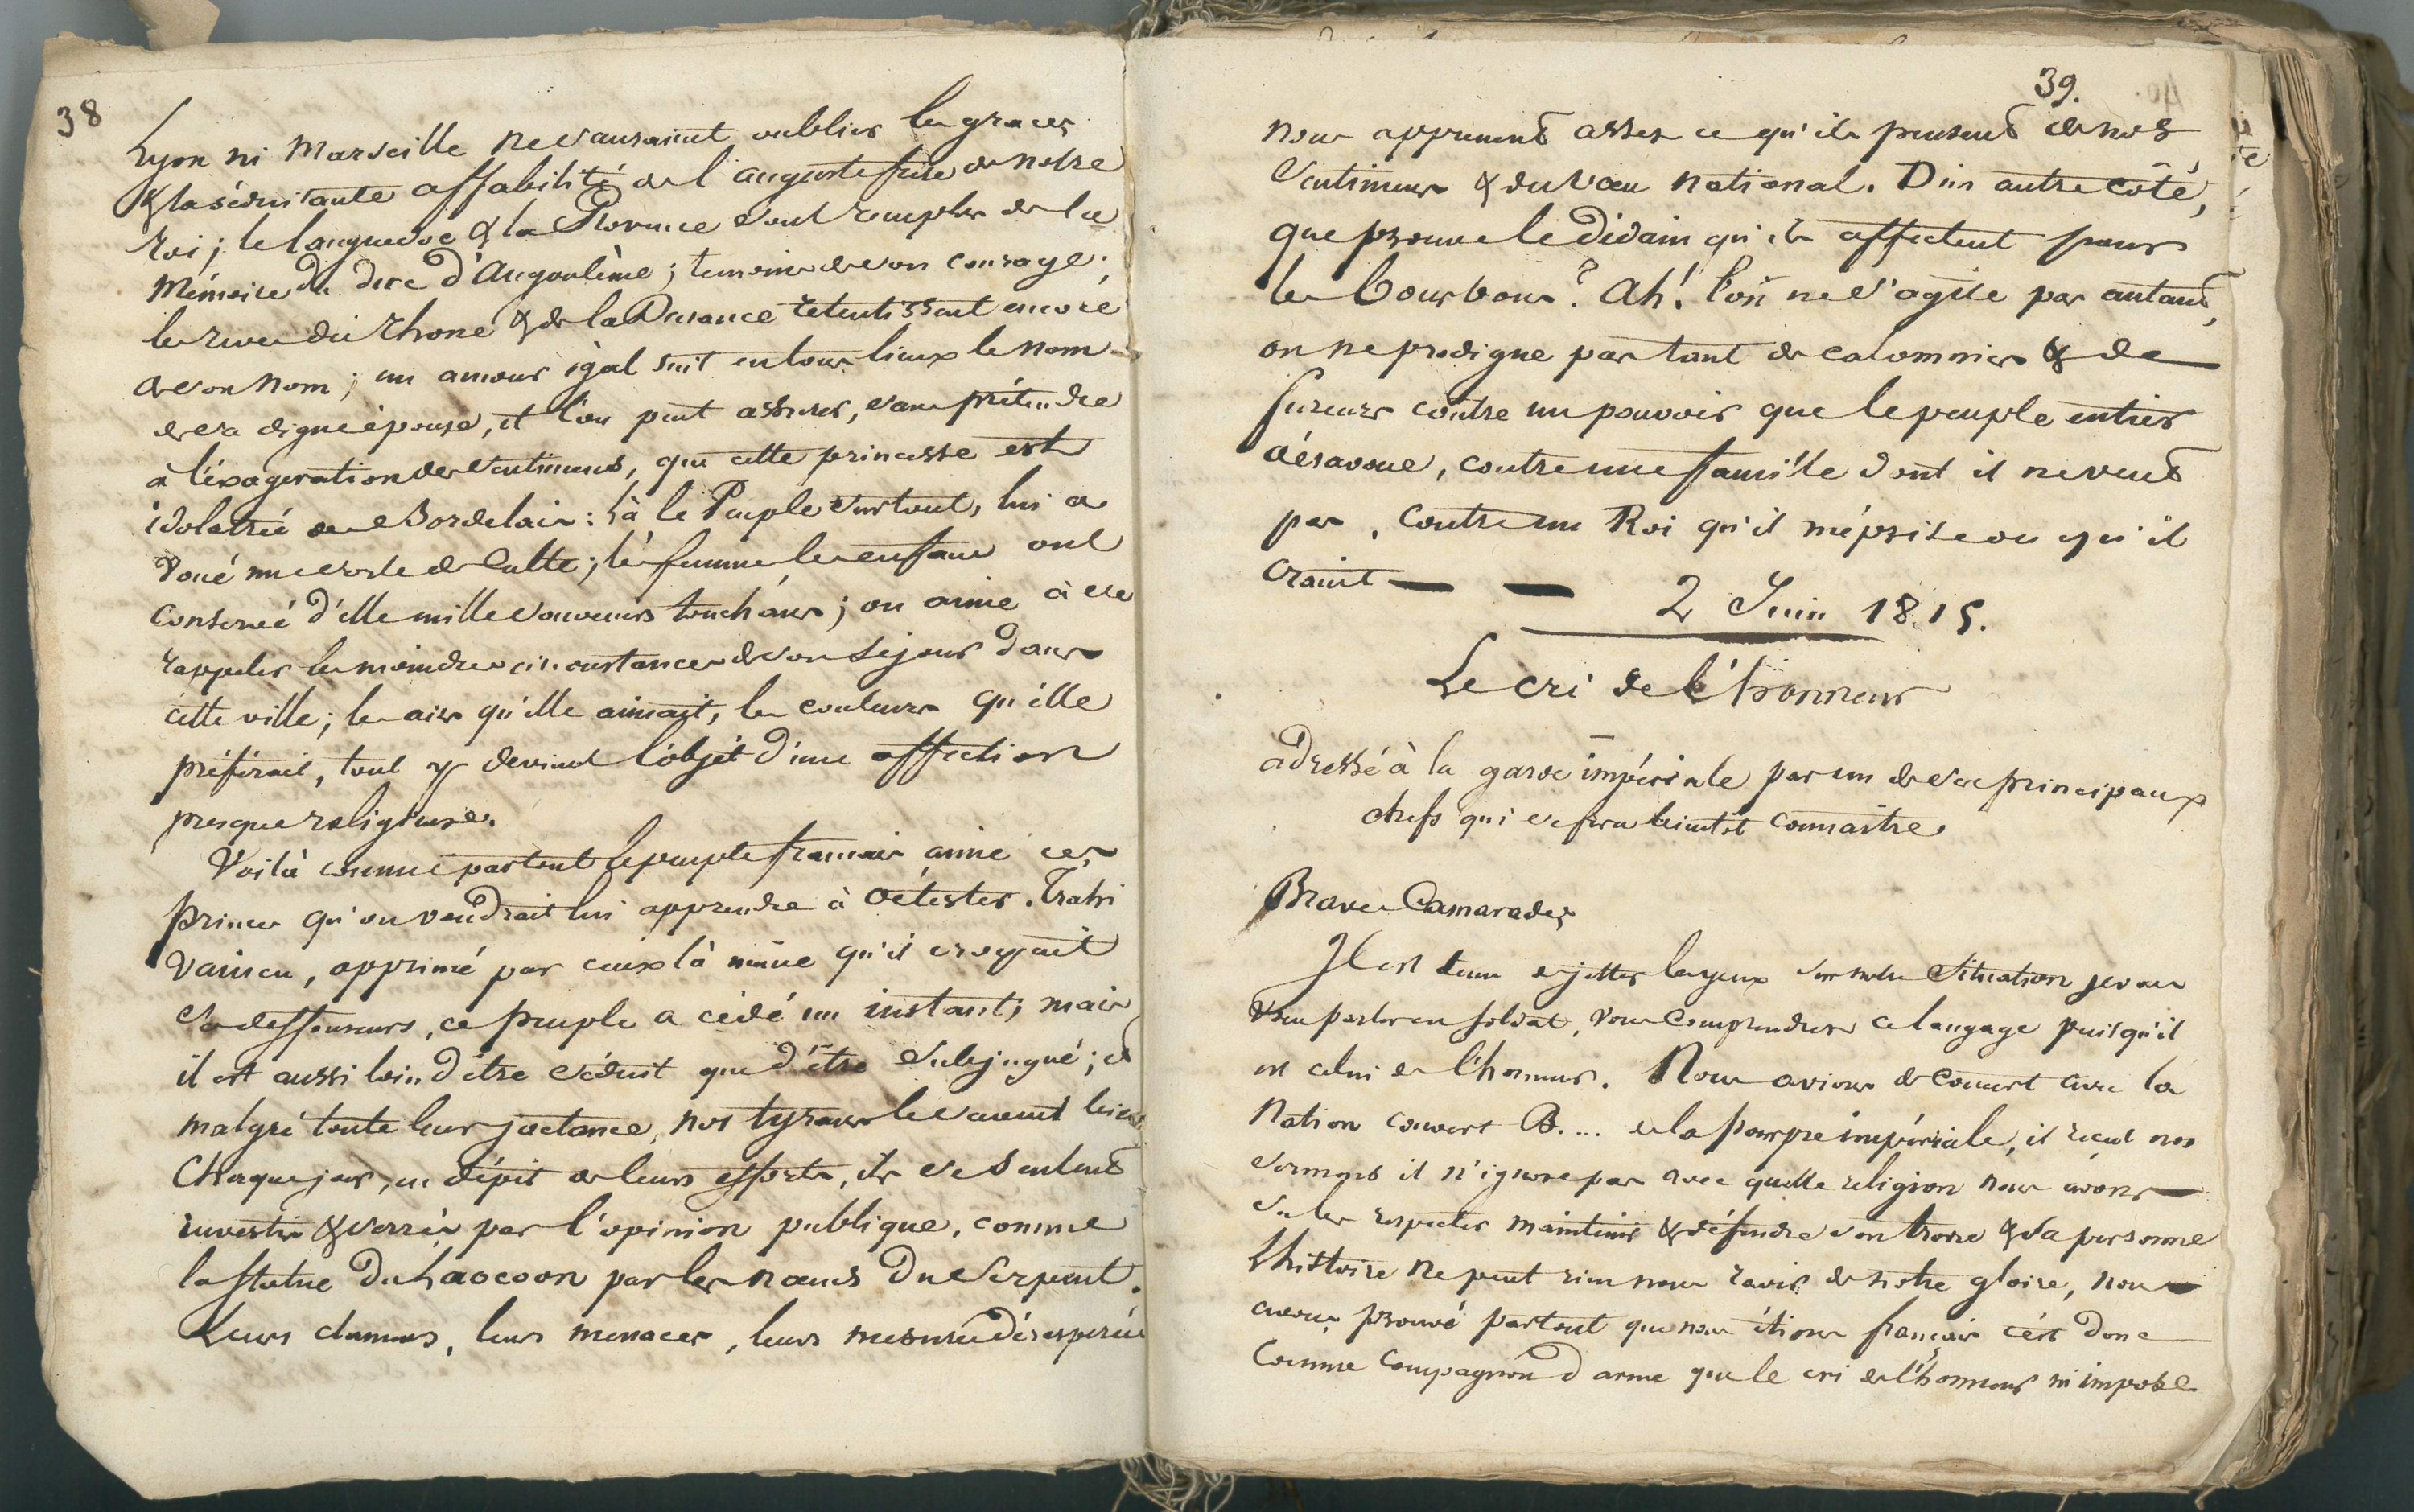 38
Lyon ni Marseille ne sauraient oublier les graces
& la séduisante affabilité de l'auguste frère de notre
roi; le languedoc & la Provence sont remplis de la
mémoire du duc d'Angoulême; temoins de son courage,
les rives du Rhone & de la Durance retentissent encore
de son nom; un amour égal suit en tous lieux le nom
de sa digne épouse, et l'on peut assurer, sans prétendre
à l'éxageration des sentimens, que cette princesse est
idolatrée des Bordelais: là le Peuple surtout, lui a
voué une sorte de Culte; les femmes les enfans ont
conservé d'elle mille souvenirs touchans; on aime à se
rappeler les moindres circonstances de son séjour dans
cette ville; les airs qu'elle aimait, les couleurs qu'elle
préférait, tout y devient l'objet d'une affection
presque religieuse.
Voilà comme partout le peuple francais aime ces
princes qu'on voudrait lui apprendre à détester. Trahi
vaincu, opprimé par ceux là même qu'il croyait
ses deffenseurs, ce peuple a cédé un instant; mais
il est aussi loin d'être séduit que d'être subjugué; et
malgré toute leur jactance, nos tyrans le savent bien
Chaque jour, en dépit de leurs efforts, ils se sentent
investis & serrés par l'opinion publique, comme
la statue du Laocoon par les nœuds du Serpent.
Leurs clameurs, leurs menaces, leurs mesures désespérées
39.
nous apprennent assez ce qu'ils pensent de nos
sentimens & du vœu national. D'un autre côté,
que prouve le dédain qu'ils affectent pour
les bourbons? Ah! l'on ne s'agite pas autant,
on ne prodigue pas tant de calomnies & de
fureurs contre un pouvoir que le peuple entier
désavoue, contre une famille dont il ne veut
pas, contre un Roi qu'il méprise ou qu'il
craint — — 2 Juin 1815.
Le cri de l'honneur
adressé à la garde impériale par un de ses principaux
chefs qui se fera bientôt connaitre.
Braves Camarades
Il est tems de jetter les yeux sur notre situation je vais
vous parler en soldat, vous comprendres ce langage puisqu'il
est celui de l'honneur. Nous avions de concert avec la
Nation couvert B.... de la pourpre impériale, il recut nos
sermens il n'ignore pas avec quelle religion nous avons
su les respecter maintenir & défendre son trone & sa personne
L'histoire ne peut rien nous ravir de notre gloire, nous
avons prouvé partout que nous étions français c'est donc
Comme Compagnon d'arme que le cri de l'honneur m'impose